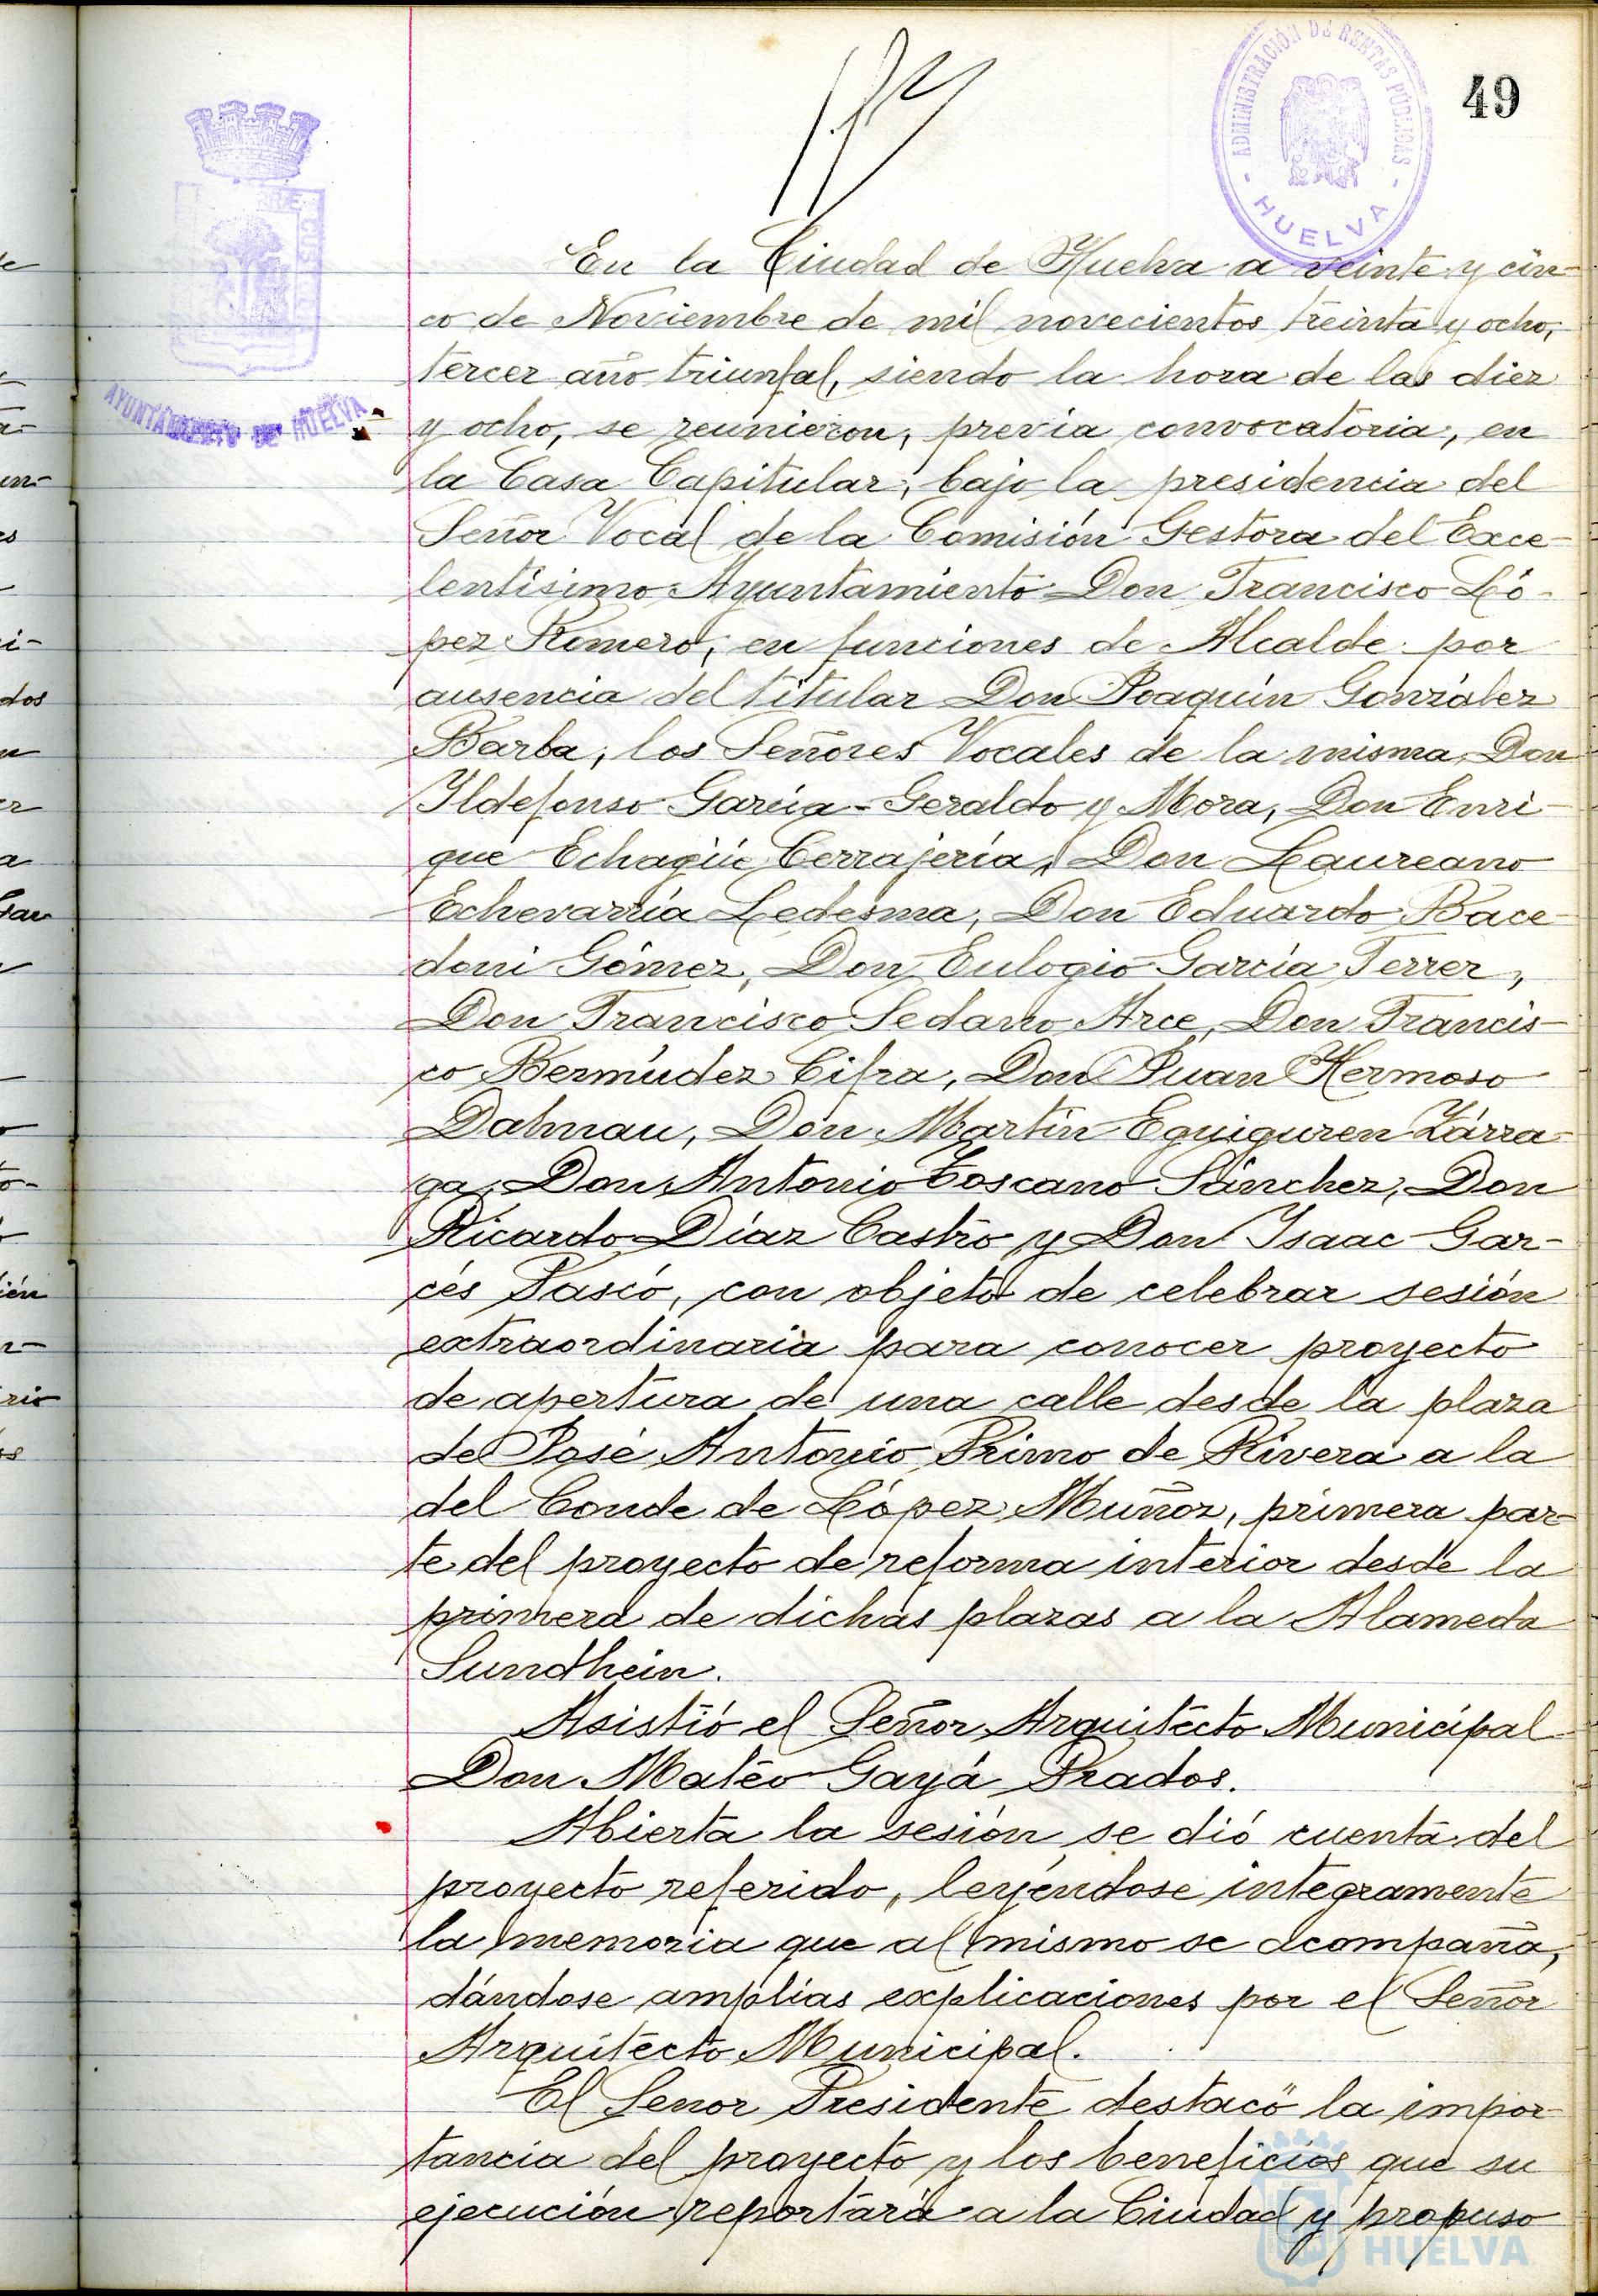 ADMINISTRACIÓN DE RENTAS PÚBLICAS
- HUELVA -
49
AYUNTAMIENTO DE HUELVA
En la Ciudad de Huelva a veinte y cin-
co de Noviembre de mil novecientos treinta y ocho,
tercer año triunfal, siendo la hora de las diez
y ocho, se reunieron, previa convocatoria, en
la Casa Capitular, bajo la presidencia del
Señor Vocal de la Comisión Gestora del Exce-
lentísimo Ayuntamiento Don Francisco Ló-
pez Romero, en funciones de Alcalde por
ausencia del titular Don Joaquín González
Barba, los Señores Vocales de la misma, Don
Ildefonso García-Geraldo y Mora, Don Enri-
que Echagüe Cerrajería, Don Laureano
Echevarría Ledesma, Don Eduardo Bace-
doni Gómez, Don Eulogio García Ferrer,
Don Francisco Sedano Arce, Don Francis-
co Bermúdez Cifra, Don Juan Hermoso
Dalmau, Don Martín Eguiguren Zárra-
ga, Don Antonio Toscano Sánchez, Don
Ricardo Díaz Castro y Don Isaac Gar-
cés Pascó, con objeto de celebrar sesión
extraordinaria para conocer proyecto
de apertura de una calle desde la plaza
de José Antonio Primo de Rivera a la
del Conde de López Muñoz, primera par-
te del proyecto de reforma interior desde la
primera de dichas plazas a la Alameda
Sundhein.
Asistió el Señor Arquitecto Municipal
Don Mateo Gayá Prados.
Abierta la sesión se dió cuenta del
proyecto referido, leyéndose integramente
la memoria que al mismo se acompaña,
dándose amplias explicaciones por el Señor
Arquitecto Municipal.
El Senor Presidente destacó la impor-
tancia del proyecto y los beneficios que su
ejecución reportará a la Ciudad y propuso
HUELVA